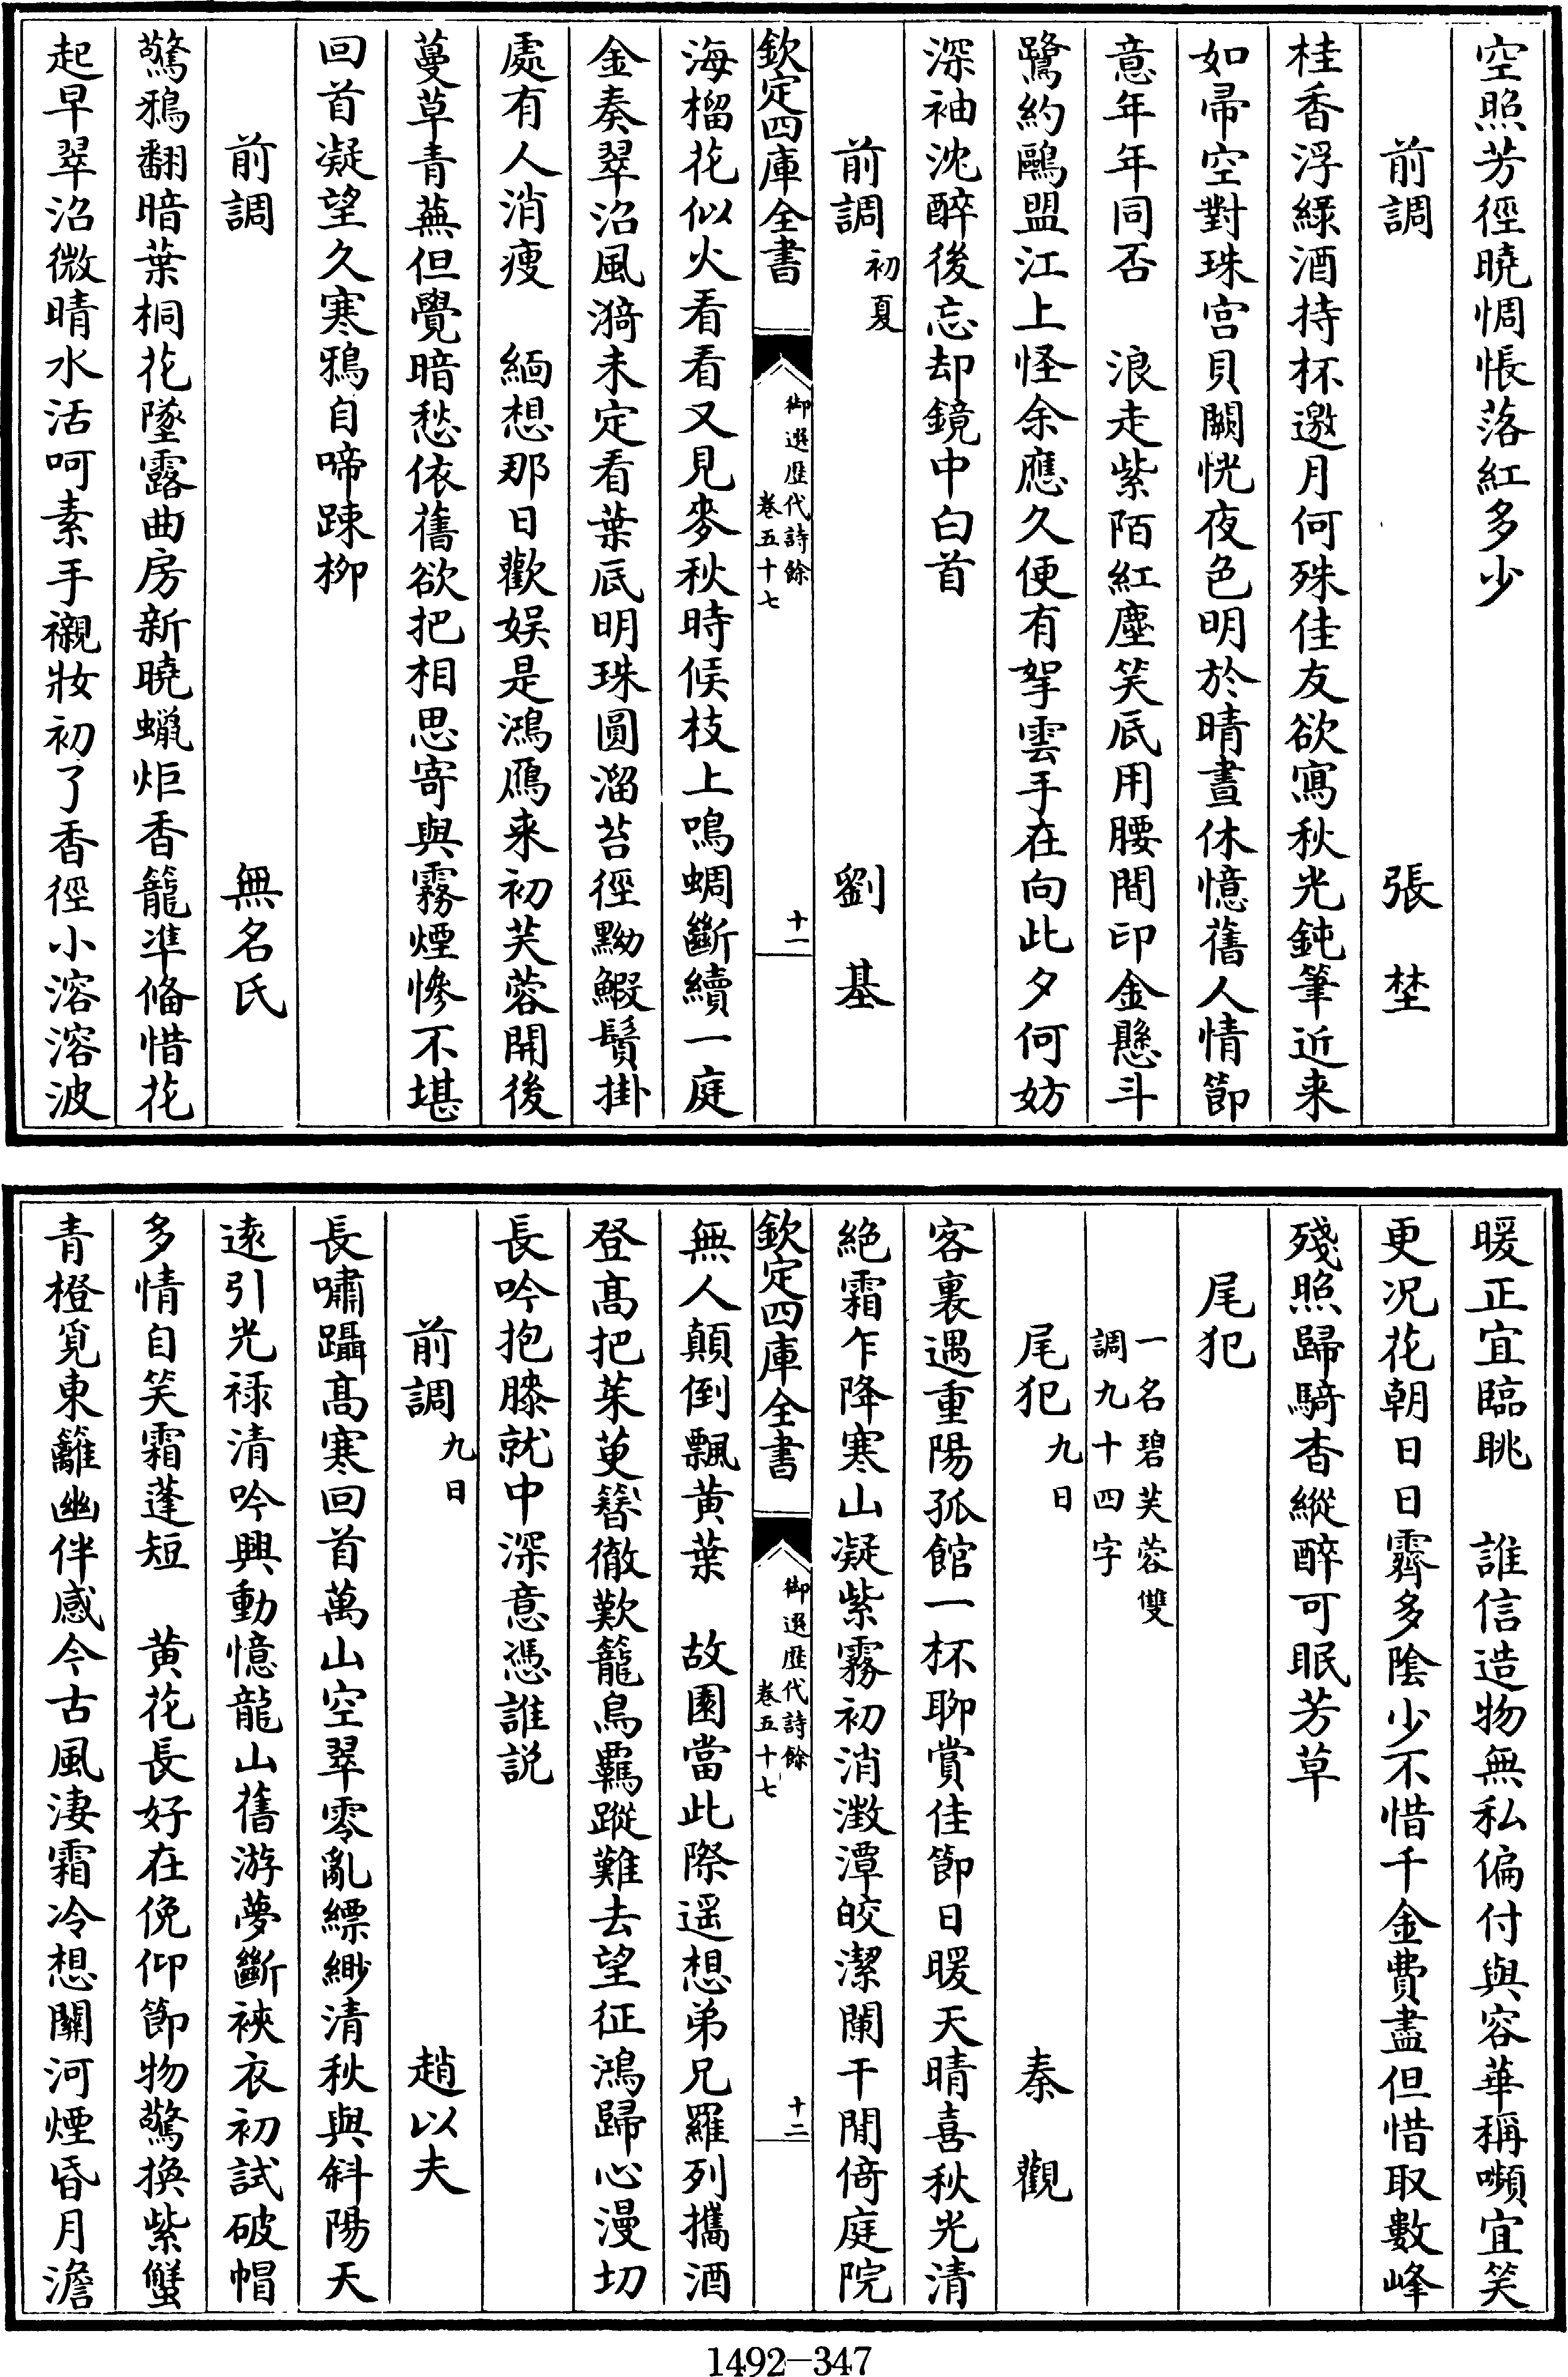 空照芳徑曉惆悵落紅多少
前調　張埜
桂香浮綠酒持杯邀月何殊佳友欲寫秋光鈍筆近来
如帚空對珠宫貝闕恍夜色明於晴晝休憶舊人情節
意年年同否　浪走紫陌紅塵笑底用腰間印金懸斗
鷺約鷗盟江上怪余應久便有拏雲手在向此夕何妨
深袖沈醉後忘却鏡中白首
前調初夏　劉基
欽定四庫全書　御選歷代詩餘　卷五十七　十一
海榴花似火看看又見麥秋時候枝上鳴蜩斷續一庭
金奏翠沼風漪未定看葉底明珠圓溜苔徑黝鰕鬚掛
處有人消瘦　緬想那日歡娱是鴻鴈来初芙蓉開後
蔓草青蕪但覺暗愁依舊欲把相思寄與霧煙惨不堪
回首凝望久寒鴉自啼踈栁
前調　無名氏
驚鴉翻暗葉桐花墜露曲房新曉蠟炬香籠準備惜花
起早翠沼微晴水活呵素手襯妝初了香徑小溶溶波
暖正宜臨眺　誰信造物無私偏付與容華稱嚬宜笑
更况花朝日日霽多陰少不惜千金費盡但惜取數峰
殘照歸騎杳縱醉可眠芳草
尾犯
一名碧芙蓉雙
調九十四字
尾犯九日　秦觀
客裏遇重陽孤館一杯聊賞佳節日暖天晴喜秋光清
絶霜乍降寒山凝紫霧初消澂潭皎潔闌干閒倚庭院
欽定四庫全書　御選歷代詩餘　卷五十七　十二
無人顛倒飄黄葉　故園當此際遥想弟兄羅列攜酒
登髙把茱萸簪徹歎籠鳥羈蹤難去望征鴻歸心漫切
長吟抱膝就中深意憑誰説
前調九日　趙以夫
長嘯躡髙寒回首萬山空翠零亂縹緲清秋與斜陽天
逺引光禄清吟興動憶龍山舊游夢斷裌衣初試破帽
多情自笑霜蓬短　黄花長好在俛仰節物驚換紫蟹
青橙覓東籬幽伴感今古風淒霜冷想關河煙昏月澹
1492—347